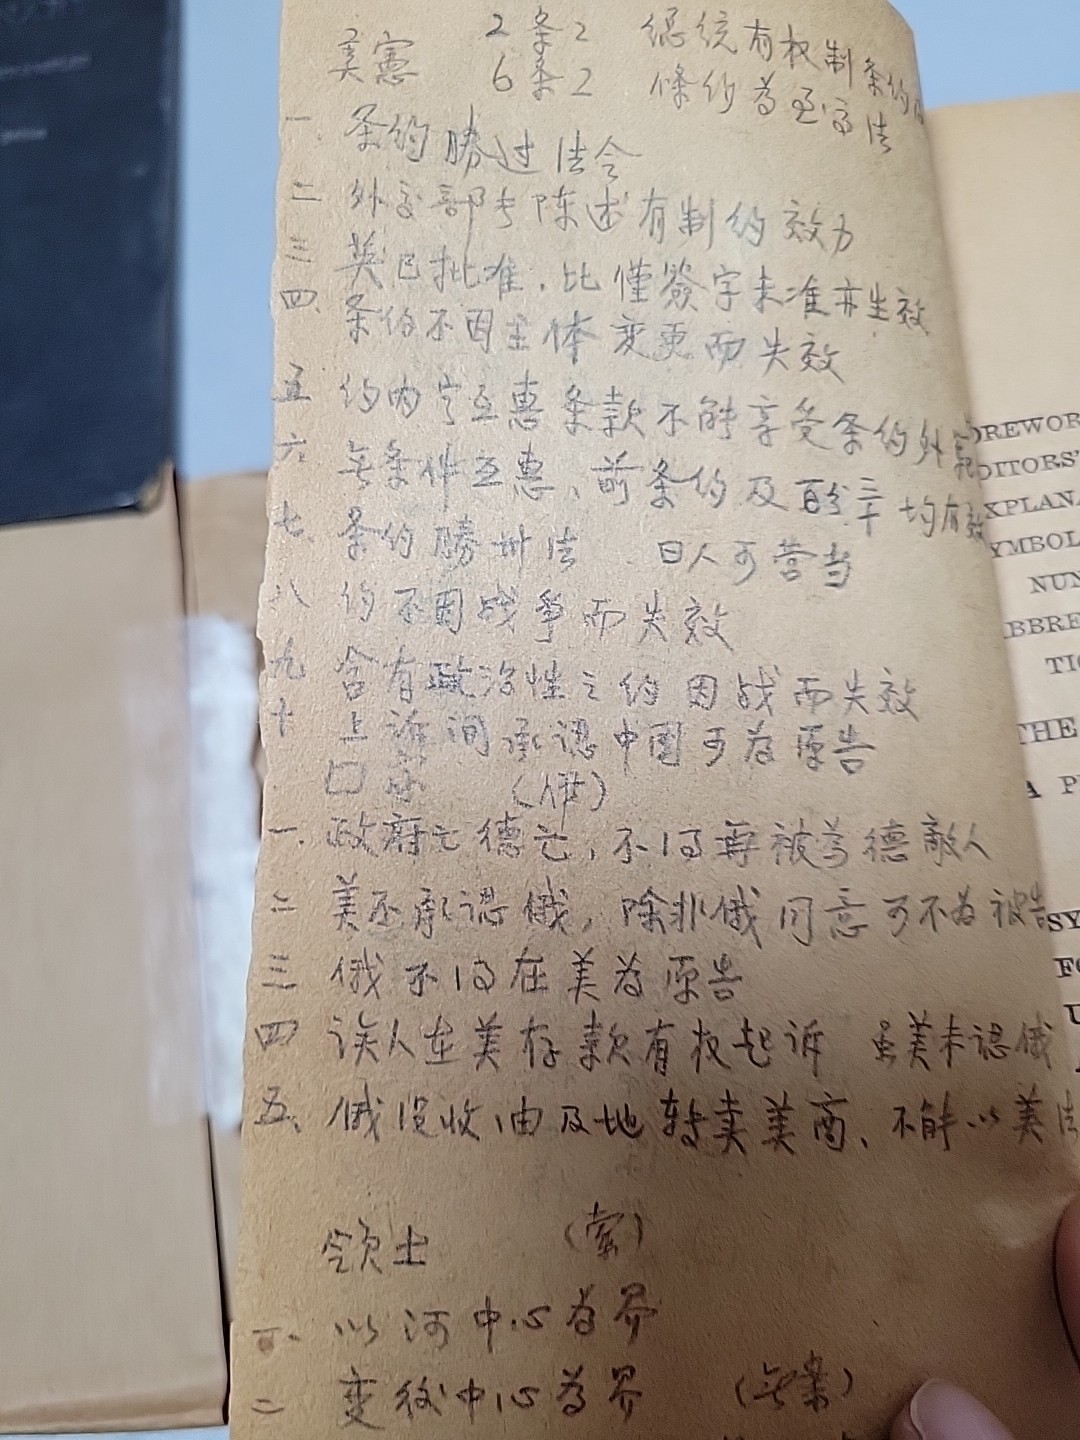 美憲 2条2 總统有权制条约
6条2 條约為至高法
一. 条约勝过法令
二 外交部长陈述有制约效力
三 英已批准,比僅簽字未准亦生效
四. 条约不因主体变更而失效
五 约内互惠条款不能享受条约外
六 無条件互惠、前条约及百分三十均有效
七. 条约勝州法 日人可营当
八 约不因战争而失效
九 含有政治性之约因战而失效
十 上诉间承認中國可為原告
政府亡德亡,不得再被為德敵人
一.
二 美不承認俄,除非俄同意可不為被告
三 俄不得在美為原告
四 误人在美存款有权起诉 虽美未認俄
五、俄没收油及地转卖美商、不能以美法
领土 (案)
一. 以河中心為界
二 变後中心為界 (無案)
FOREWOR
EDITORS'
EXPLANA
SYMBOL
NUM
ABBRE
TIO
THE
A P
SY
FO
U